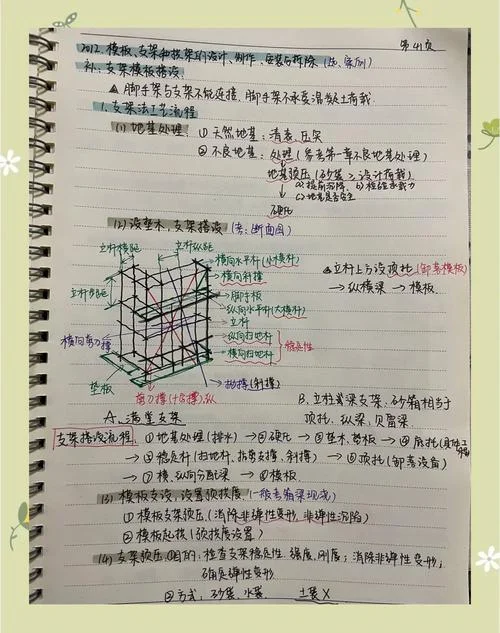 第41页
2012.模板、支架和拱架的设计、制作、安装与拆除(选、案例)
补:支架模板搭设
▲脚手架与支架不能连接,脚手架不承受混凝土荷载.
1.支架法工艺流程
(1)地基处理:①天然地基:清表、压实
②不良地基:处理(参考第一章不良地基处理)
地基预压(砂袋≥设计荷载)
c)地基是否安全
硬化
(2)设垫木,支架搭设(考:断面图)
立杆横距
立杆纵距
横向水平杆(小横杆)
横向斜撑
立杆步距
脚手板
纵向水平杆(大横杆)
立杆
横向剪刀撑
纵向扫地杆
横向扫地杆
稳定性
垫板
抛撑(斜撑)
剪刀撑(十字撑)纵
▲立杆上方设顶托(卸落模板)
→纵横梁→模板.
A.满堂支架
B.立柱贝雷梁支架.砂箱相当于
顶托、纵梁、贝雷梁
支架搭设流程 ①地基处理(排水)→②硬化→③垫木、垫板→④底托
→⑤稳定杆(扫地杆、抛剪支撑、斜撑)→⑥顶托(卸落设备)
→⑦横、纵向分配梁→⑧模板.
(3)模板安设,设置预拱度(一般考箱梁现浇)
①模板支架预压(消除非弹性变形,非弹性沉陷)
②模板起拱(预拱度设置)
(4)支架预压.①目的:检查支架稳定性.强度.刚度;消除非弹性变形;
确定弹性变形
②方式:砂袋、水袋. 土袋X